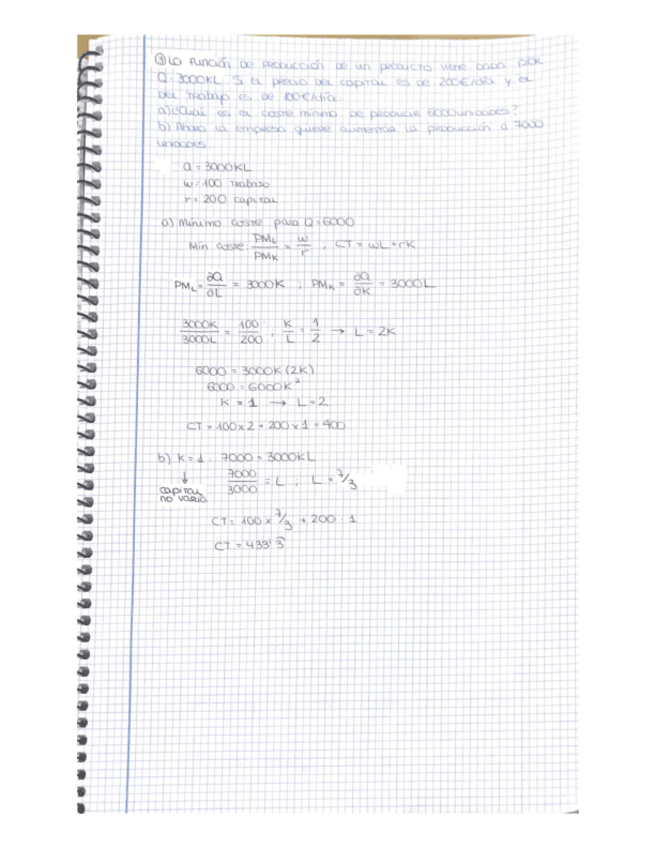 ③ La función de producción de un producto viene dada por
Q = 3000KL. Si el precio del capital es de 200€/día y el
del trabajo es de 100€/día.
a) ¿Cuál es el coste mínimo de producir 6000 unidades?
b) Ahora la empresa quiere aumentar la producción a 7000
unidades
Q = 3000KL
w = 100 trabajo
r = 200 capital
a) Mínimo coste para Q = 6000
Min coste: PML/PMK = w/r ; CT = wL + rK
PML = ∂Q/∂L = 3000K ; PMK = ∂Q/∂K = 3000L
3000K/3000L = 100/200 ; K/L = 1/2 → L = 2K
6000 = 3000K (2K)
6000 = 6000K²
K = 1 → L = 2
CT = 100 x 2 + 200 x 1 = 400
b) K = 1 7000 = 3000KL
↓ 7000/3000 = L ; L = 7/3
capital
no varía
CT = 100 x 7/3 + 200 · 1
CT = 433'3̂